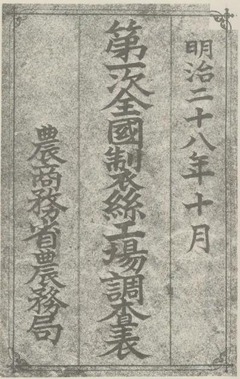 明治二十八年十月
第一次全國製絲工場調查表
農商務省農務局